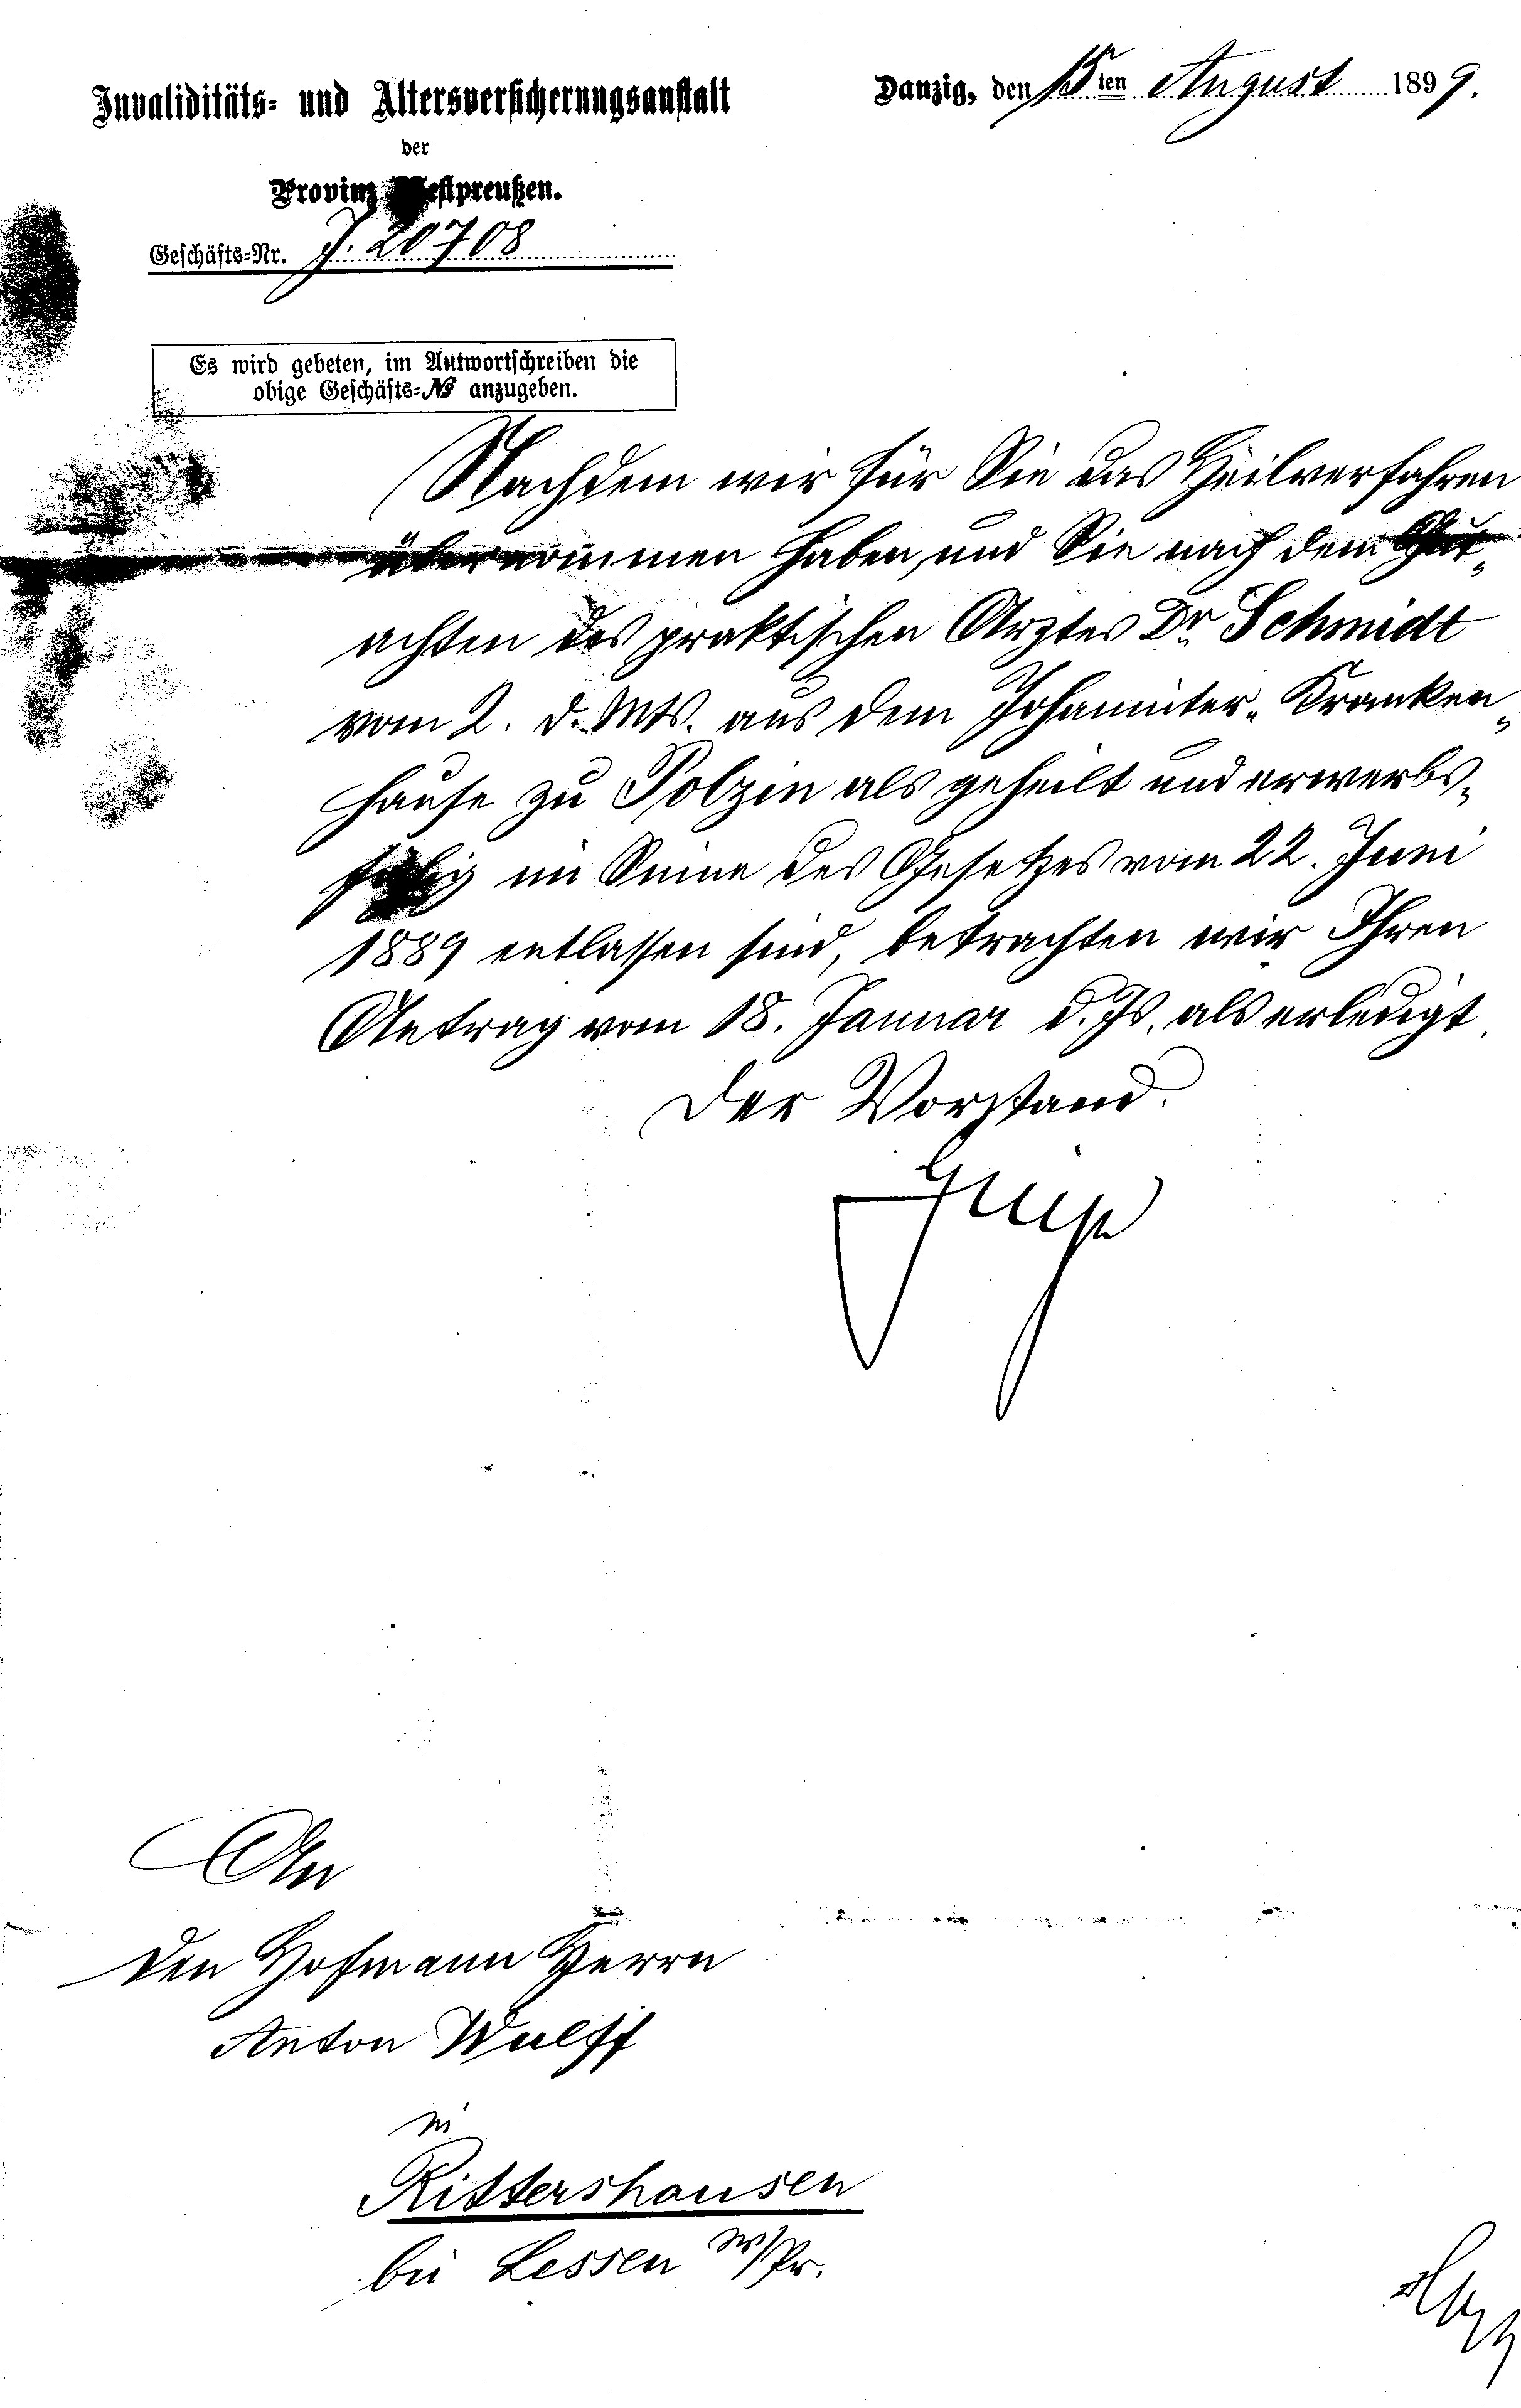 Invaliditäts- und Altersversicherungsanstalt
der
Provinz Westpreußen.
Danzig, den 15ten August 1899.
Geschäfts-Nr. J. 20708
Es wird gebeten, im Antwortschreiben die
obige Geschäfts-№ anzugeben.
Nachdem wir für Sie das Heilverfahren
übernommen haben, und Sie nach dem Gut-
achten des praktischen Arztes Dr. Schmidt
vom 2. d. Mts. aus dem Johanniter-Kranken-
hause zu Polzin als geheilt und erwerbs-
fähig im Sinne des Gesetzes vom 22. Juni
1889 entlassen sind, betrachten wir Ihren
Antrag vom 18. Januar d. Js. als erledigt.
Der Vorstand.
An
den Hofmann Herrn
Anton Wulff
in
Rittershausen
bei Lessen W/Pr.